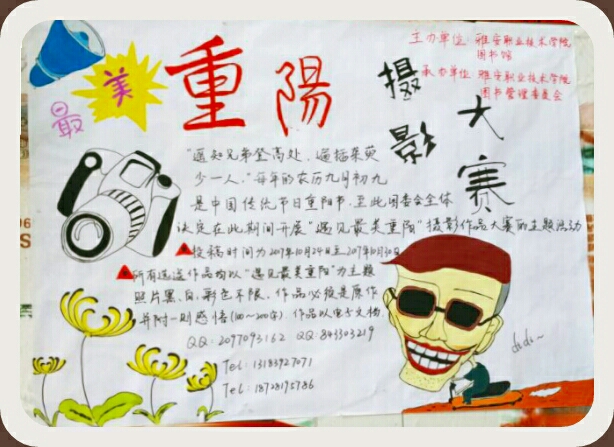 最美重陽
摄影大赛
主办单位:雅安职业技术学院
图书馆
承办单位:雅安职业技术学院
图书管理委员会
"遥知兄弟登高处,遍插茱萸
少一人。"每年的农历九月初九
是中国传统节日重阳节,至此图委会全体
决定在此期间开展"遇见最美重阳"摄影作品大赛的主题活动
投稿时间为2017年10月24日至2017年10月30日
所有选送作品均以"遇见最美重阳"为主题
照片黑、白、彩色不限,作品必须是原作
并附一则感悟(100~200字)作品以电子文档
QQ:2097093162 QQ:843303219
Tel:13183927071
Tel:18728175786
dudu~